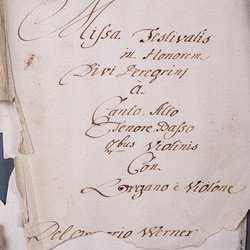 Missa Festivalis
in Honorem
Divi Peregrini
â
Canto, Alto
Tenore, Basso
2bus Violinis
Con
L'organo è Violone
Del Gregorio Werner